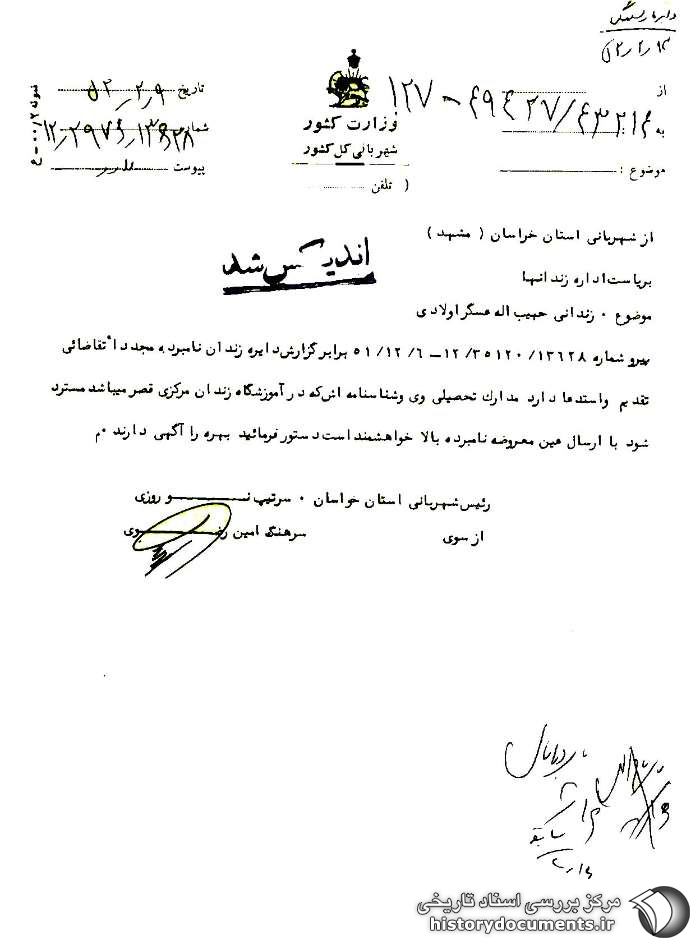 ۵۲٫۲٫۱۳
از
به
موضوع :
۱۲۷ - ۴۹۴۲۷/۴۳۲۱۴
وزارت کشور
شهربانی کل کشور
( تلفن
تاریخ ۵۲٫۲٫۹
شماره
پیوست
نمونه ۲/ ۰۰ــ ع
اندیکس شد
از شهربانی استان خراسان ( مشهد )
بریاست اداره زندانها
موضوع ۰ زندانی حبیب اله عسگر اولادی
پیرو شماره ۱۳۶۲۸/ ۳۵۱۲۰/ ۱۲ــ ۶/ ۱۲/ ۵۱ برابر گزارش دایره زندان نامبرده مجدداً تقاضائی
تقدیم واستدعا دارد مدارك تحصیلی وی وشناسنامه اش که در آموزشگاه زندان مرکزی قصر میباشد مسترد
شود با ارسال عین معروضه نامبرده بالا خواهشمند است دستور فرمائید بهره را آگهی دارند ۰م
رئیس شهربانی استان خراسان ۰ سرتیپ نــــوروزی
از سوی سرهنگ امین رضــــوی
سابقه
مرکز بررسی اسناد تاریخی
historydocuments.ir